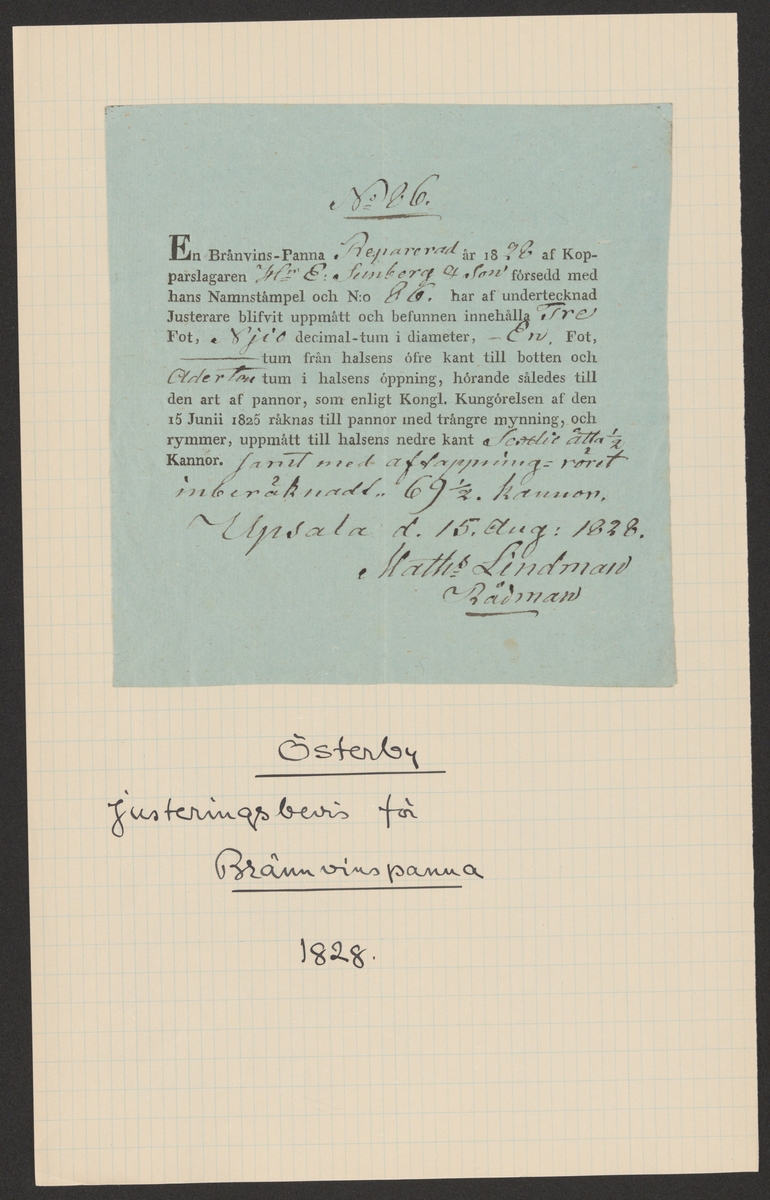 No 86.
En Brånvins-Panna Reparerad år 1828 af Kop-
parslagaren Hr E: Sunberg & Son försedd med
hans Namnstämpel och N:o 86. har af undertecknad
Justerare blifvit uppmått och befunnen innehålla Tre
Fot, Njio decimal-tum i diameter, – En, Fot,
——— tum från halsens öfre kant till botten och
Aderton tum i halsens öppning, hörande således till
den art af pannor, som enligt Kongl. Kungörelsen af den
15 Junii 1825 räknas till pannor med trängre mynning, och
rymmer, uppmått till halsens nedre kant Sextie åtta ½
Kannor. samt med aftappning=röret
inberäknadt„ 69 ½. kannor.
Upsala d. 15. Aug: 1828.
Maths Lindman
Rådman
Österby
justeringsbevis för
Brännvinspanna
1828.